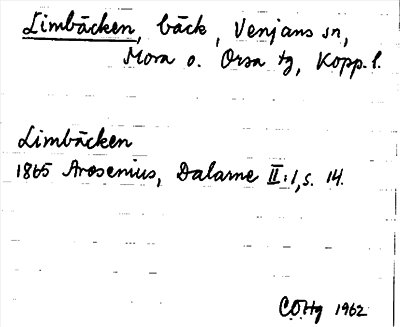 Limbäcken, bäck, Venjans sn,
Mora o. Orsa tg, Kopp. l.
Limbäcken
1865 Arosenius, Dalarne II:1, s. 14.
COHg 1962